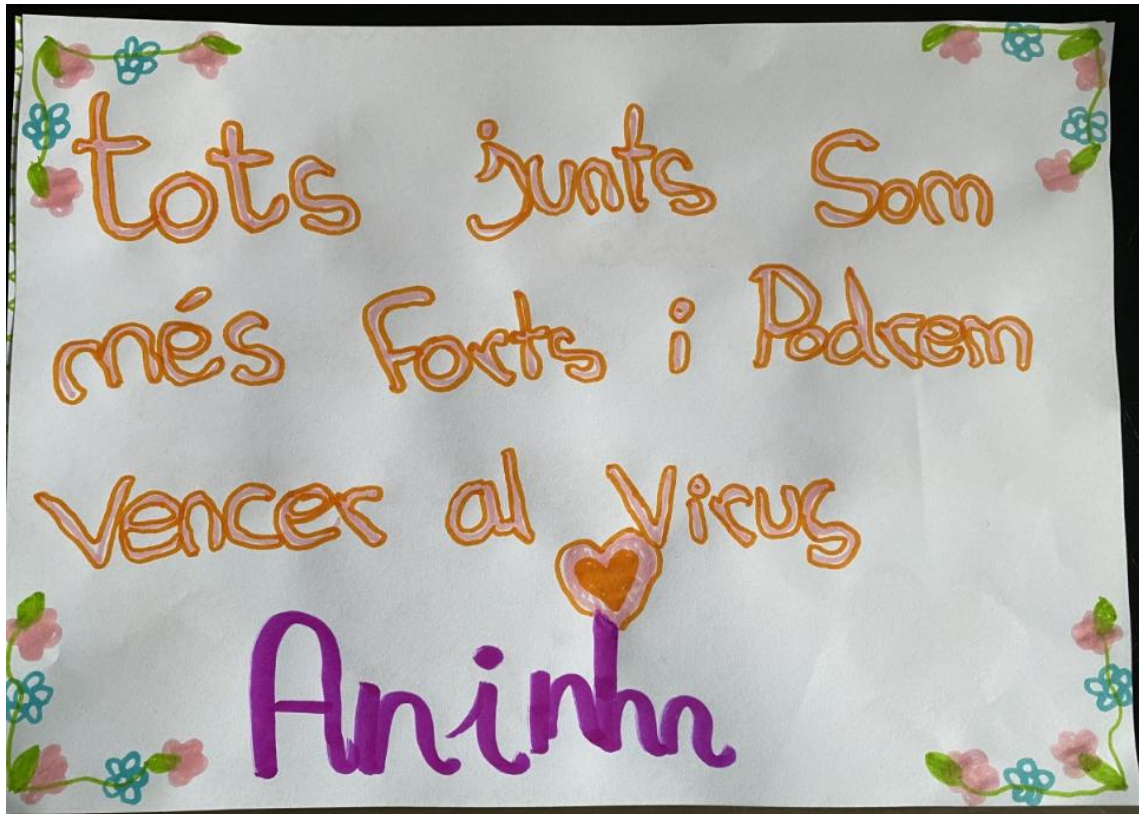 tots junts Som
més Forts i Podrem
Vencer al Virus
Aninha